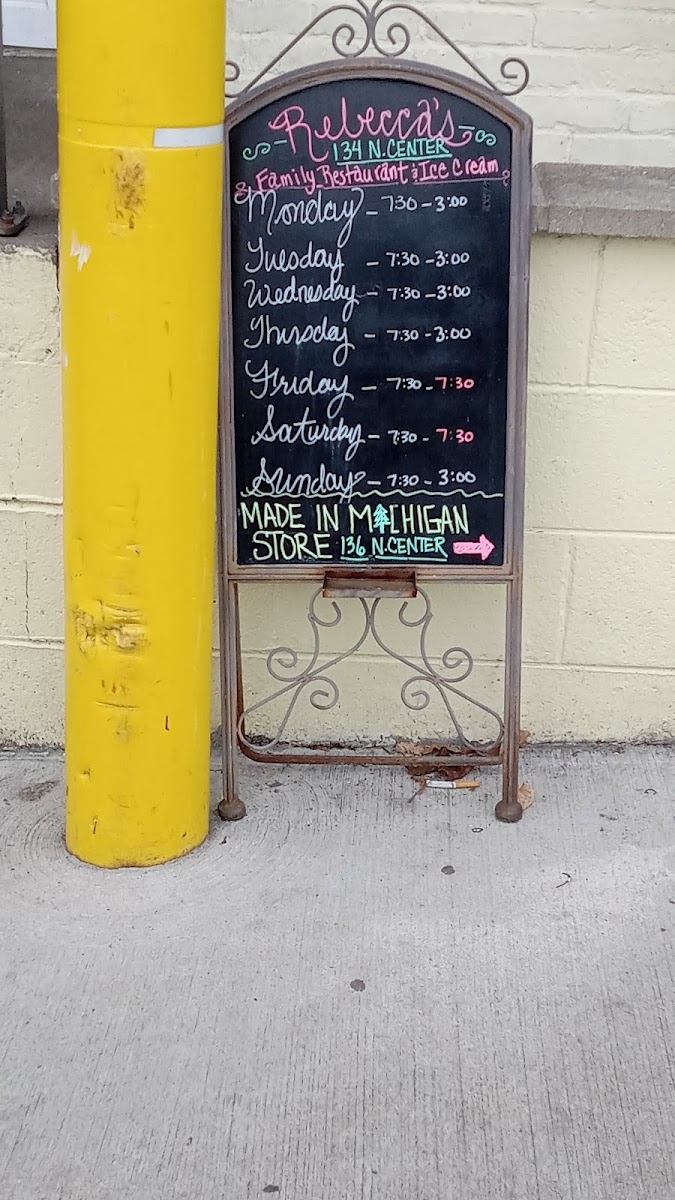 Rebecca's
134 N. CENTER
Family Restaurant & Ice Cream
Monday - 7:30 - 3:00
Tuesday - 7:30 - 3:00
Wednesday - 7:30 - 3:00
Thursday - 7:30 - 3:00
Friday - 7:30 - 7:30
Saturday - 7:30 - 7:30
Sunday - 7:30 - 3:00
MADE IN MICHIGAN
STORE 136 N. CENTER